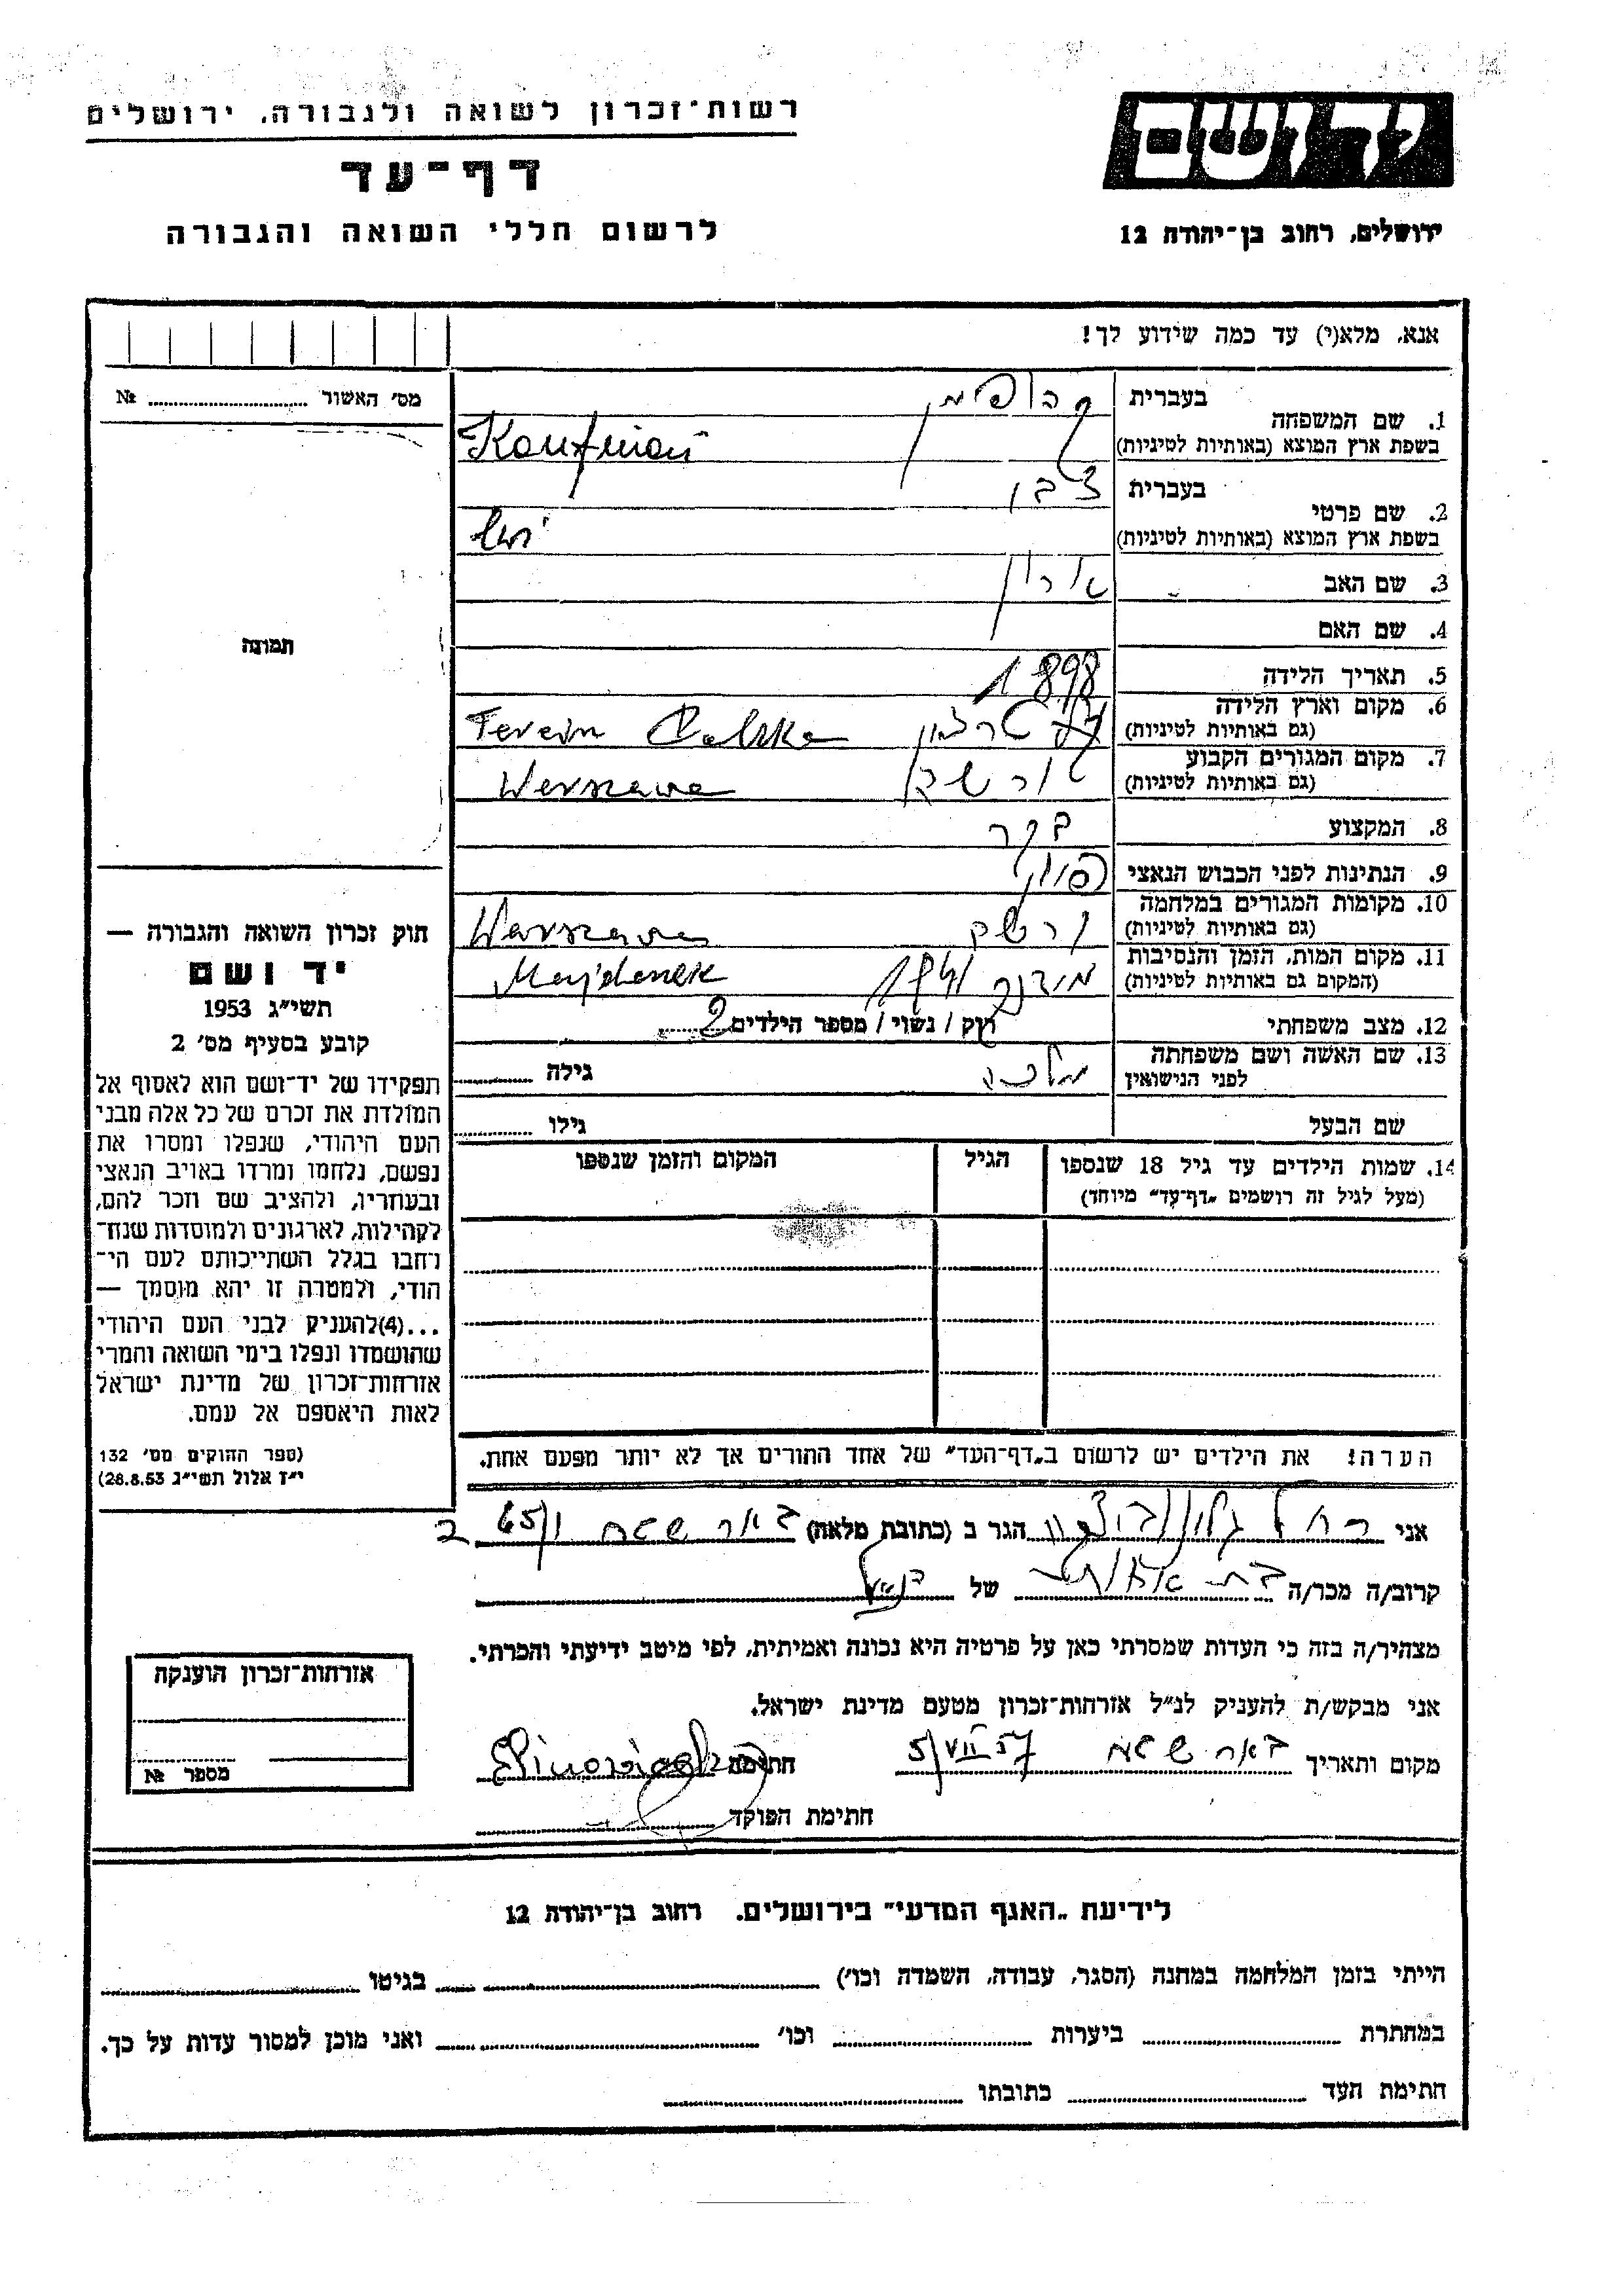 רשות־זכרון לשואה ולגבורה, ירושלים
דף־עד
לרשום חללי השואה והגבורה
יד ושם
ירושלים, רחוב בן־יהודה 12
אנא, מלא(י) עד כמה שידוע לך!
מס׳ האשור № 
תמונה
חוק זכרון השואה והגבורה —
יד ושם
תשי״ג 1953
קובע בסעיף מס׳ 2
תפקידו של יד־ושם הוא לאסוף אל
המולדת את זכרם של כל אלה מבני
העם היהודי, שנפלו ומסרו את
נפשם, נלחמו ומרדו באויב הנאצי
ובעוזריו, ולהציב שם וזכר להם,
לקהילות, לארגונים ולמוסדות שנח־
רחבו בגלל השתייכותם לעם הי־
הודי, ולמטרה זו יהא מוסמך —
...(4)להעניק לבני העם היהודי
שהושמדו ונפלו בימי השואה והמרי
אזרחות־זכרון של מדינת ישראל
לאות היאספם אל עמם.
(ספר החוקים מס׳ 132
י״ז אלול תשי״ג 28.8.53)
בעברית
1. שם המשפחה
בשפת ארץ המוצא (באותיות לטיניות) Kaufman
בעברית
2. שם פרטי
בשפת ארץ המוצא (באותיות לטיניות)
3. שם האב
4. שם האם
5. תאריך הלידה 1898
6. מקום וארץ הלידה
(גם באותיות לטיניות)
7. מקום המגורים הקבוע
(גם באותיות לטיניות) Warszawa
8. המקצוע
9. הנתינות לפני הכבוש הנאצי
10. מקומות המגורים במלחמה ורשה
(גם באותיות לטיניות) Warszawa
11. מקום המות, הזמן והנסיבות
(המקום גם באותיות לטיניות) Majdanek
12. מצב משפחתי רווק / נשוי / מספר הילדים 2
13. שם האשה ושם משפחתה מלכה גילה
לפני הנישואין
שם הבעל גילו
14. שמות הילדים עד גיל 18 שנספו הגיל המקום והזמן שנספו
(מעל לגיל זה רושמים „דף־עד״ מיוחד)
הערה! את הילדים יש לרשום ב„דף־העד״ של אחד ההורים אך לא יותר מפעם אחת.
אני רחל הגר ב (כתובת מלאה) באר שבע
קרוב/ה מכר/ה של
מצהיר/ה בזה כי העדות שמסרתי כאן על פרטיה היא נכונה ואמיתית, לפי מיטב ידיעתי והכרתי.
אני מבקש/ת להעניק לנ״ל אזרחות־זכרון מטעם מדינת ישראל.
מקום ותאריך באר שבע 5/VII 57 חתימה
חתימת הפוקד
אזרחות־זכרון הוענקה
מספר №
לידיעת „האגף המדעי״ בירושלים, רחוב בן־יהודה 12
הייתי בזמן המלחמה במחנה (הסגר, עבודה, השמדה וכו׳) בגיטו
במחתרת ביערות וכו׳ ואני מוכן למסור עדות על כך.
חתימת העד כתובתו